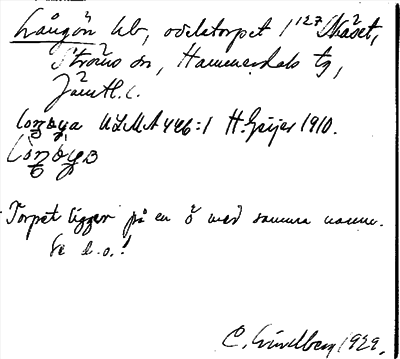 Långön hb, odelstorpet 1¹²⁷ Åkaset,
Ströms sn, Hammerdals tg,
Jämtl. l.
ULMA 446:1 H. Geijer 1910.
Torpet ligger på en ö med samma namn.
Se d.o.!
C. Lindberg 1929.